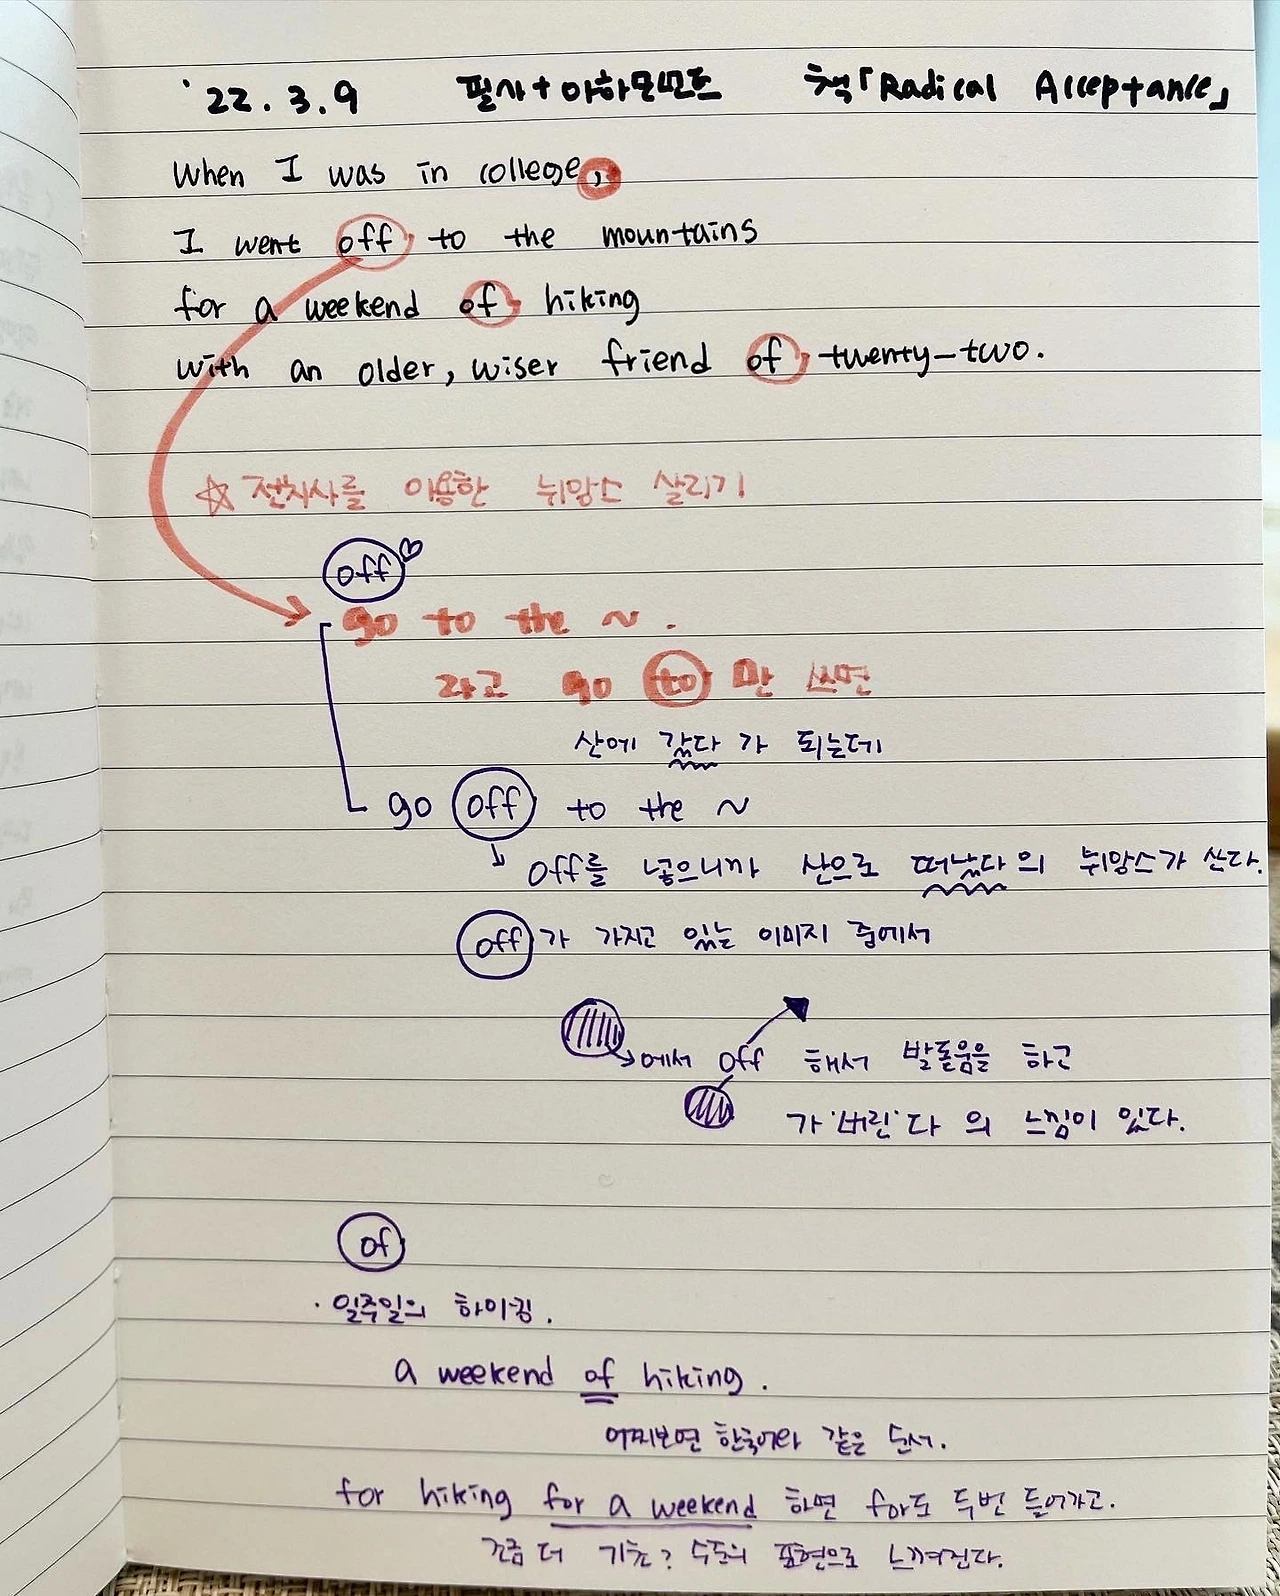 '22.3.9 필사+아하모먼트 책「Radical Acceptance」
When I was in college,
I went off to the mountains
for a weekend of hiking
with an older, wiser friend of twenty-two.
☆ 전치사를 이용한 뉘앙스 살리기
off♡
go to the ~.
라고 go to 만 쓰면
산에 갔다 가 되는데
go off to the ~
off를 넣으니까 산으로 떠났다의 뉘앙스가 산다.
off가 가지고 있는 이미지 중에서
에서 off 해서 발돋움을 하고
가'버린'다 의 느낌이 있다.
of
· 일주일의 하이킹.
a weekend of hiking.
어찌보면 한국어와 같은 순서.
for hiking for a weekend 하면 for도 두번 들어가고.
조금 더 기초? 수준의 표현으로 느껴진다.